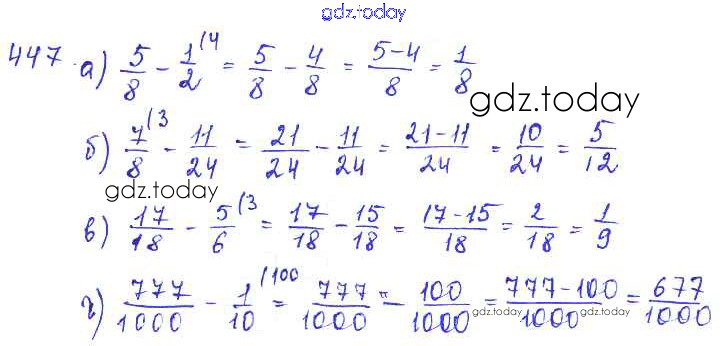 gdz.today
447. а) 5/8 - 1/2 (4 = 5/8 - 4/8 = 5-4/8 = 1/8
gdz.today
б) 7/8 (3 - 11/24 = 21/24 - 11/24 = 21-11/24 = 10/24 = 5/12
gdz.today
в) 17/18 - 5/6 (3 = 17/18 - 15/18 = 17-15/18 = 2/18 = 1/9
г) 777/1000 - 1/10 (100 = 777/1000 - 100/1000 = 777-100/1000 = 677/1000
gdz.today gdz.today